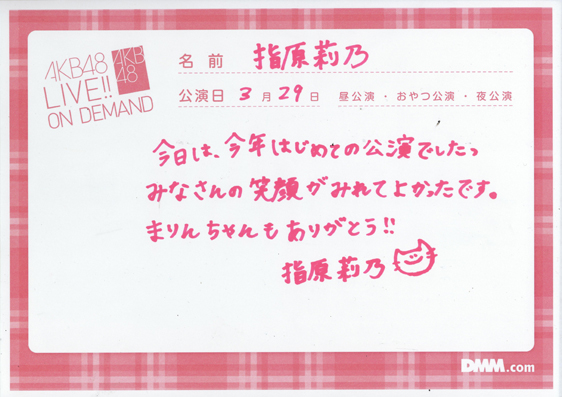 AKB48
LIVE!!
ON DEMAND
AKB
48
名前 指原莉乃
公演日 3月29日 昼公演・おやつ公演・夜公演
今日は、今年はじめての公演でしたっ
みなさんの笑顔がみれてよかったです。
まりんちゃんもありがとう!!
指原莉乃
DMM.com